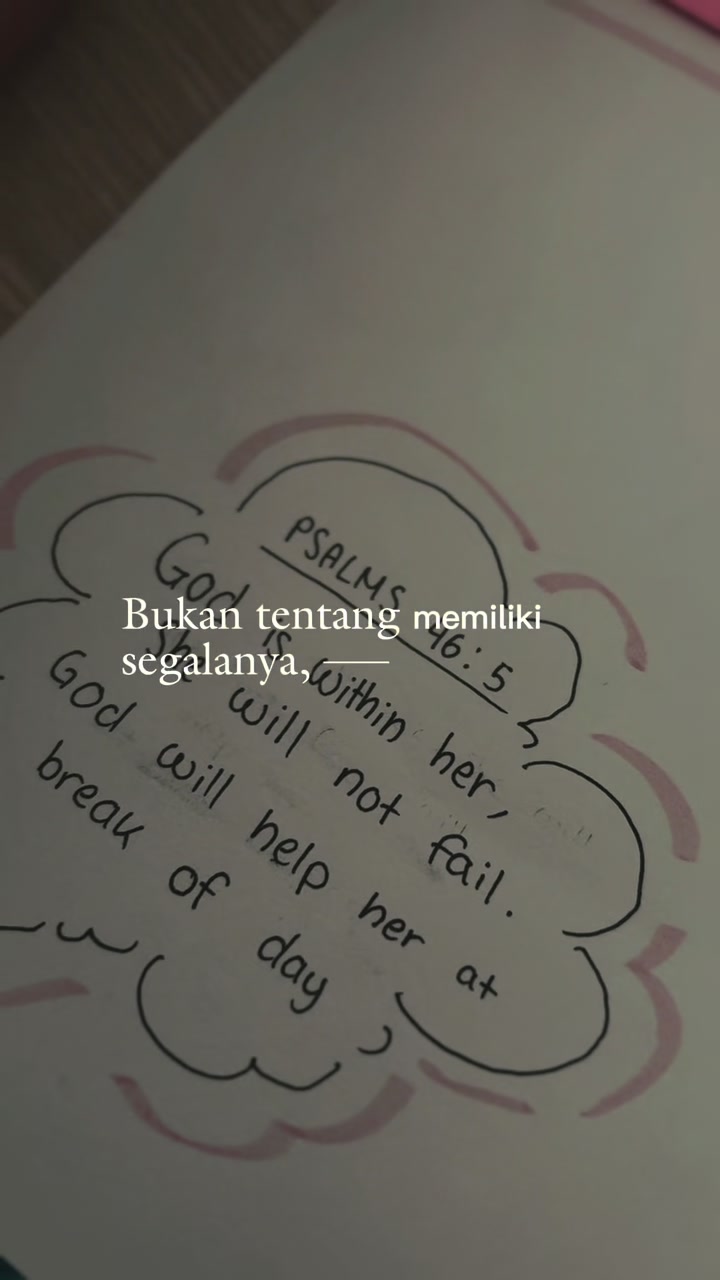 PSALMS 46:5
God is within her,
She will not fail.
God will help her at
break of day
Bukan tentang memiliki
segalanya, ——